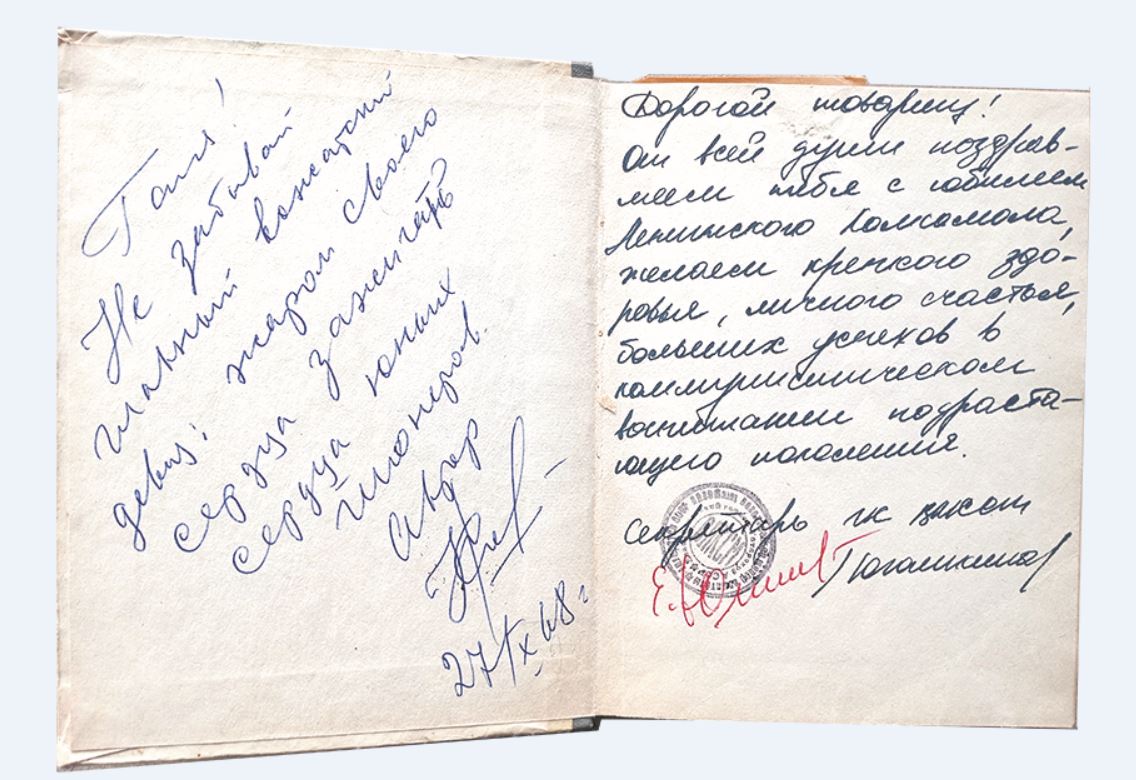 Таня!
Не забывай
главный вожатский
девиз: жаром своего
сердца зажигать
сердца юных
пионеров.
Автор
27/X 68 г.
Дорогой товарищ!
От всей души поздрав-
ляем тебя с юбилеем
Ленинского Комсомола,
желаем крепкого здо-
ровья, личного счастья,
больших успехов в
коммунистическом
воспитании подраста-
ющего поколения.
Секретарь ГК ВЛКСМ